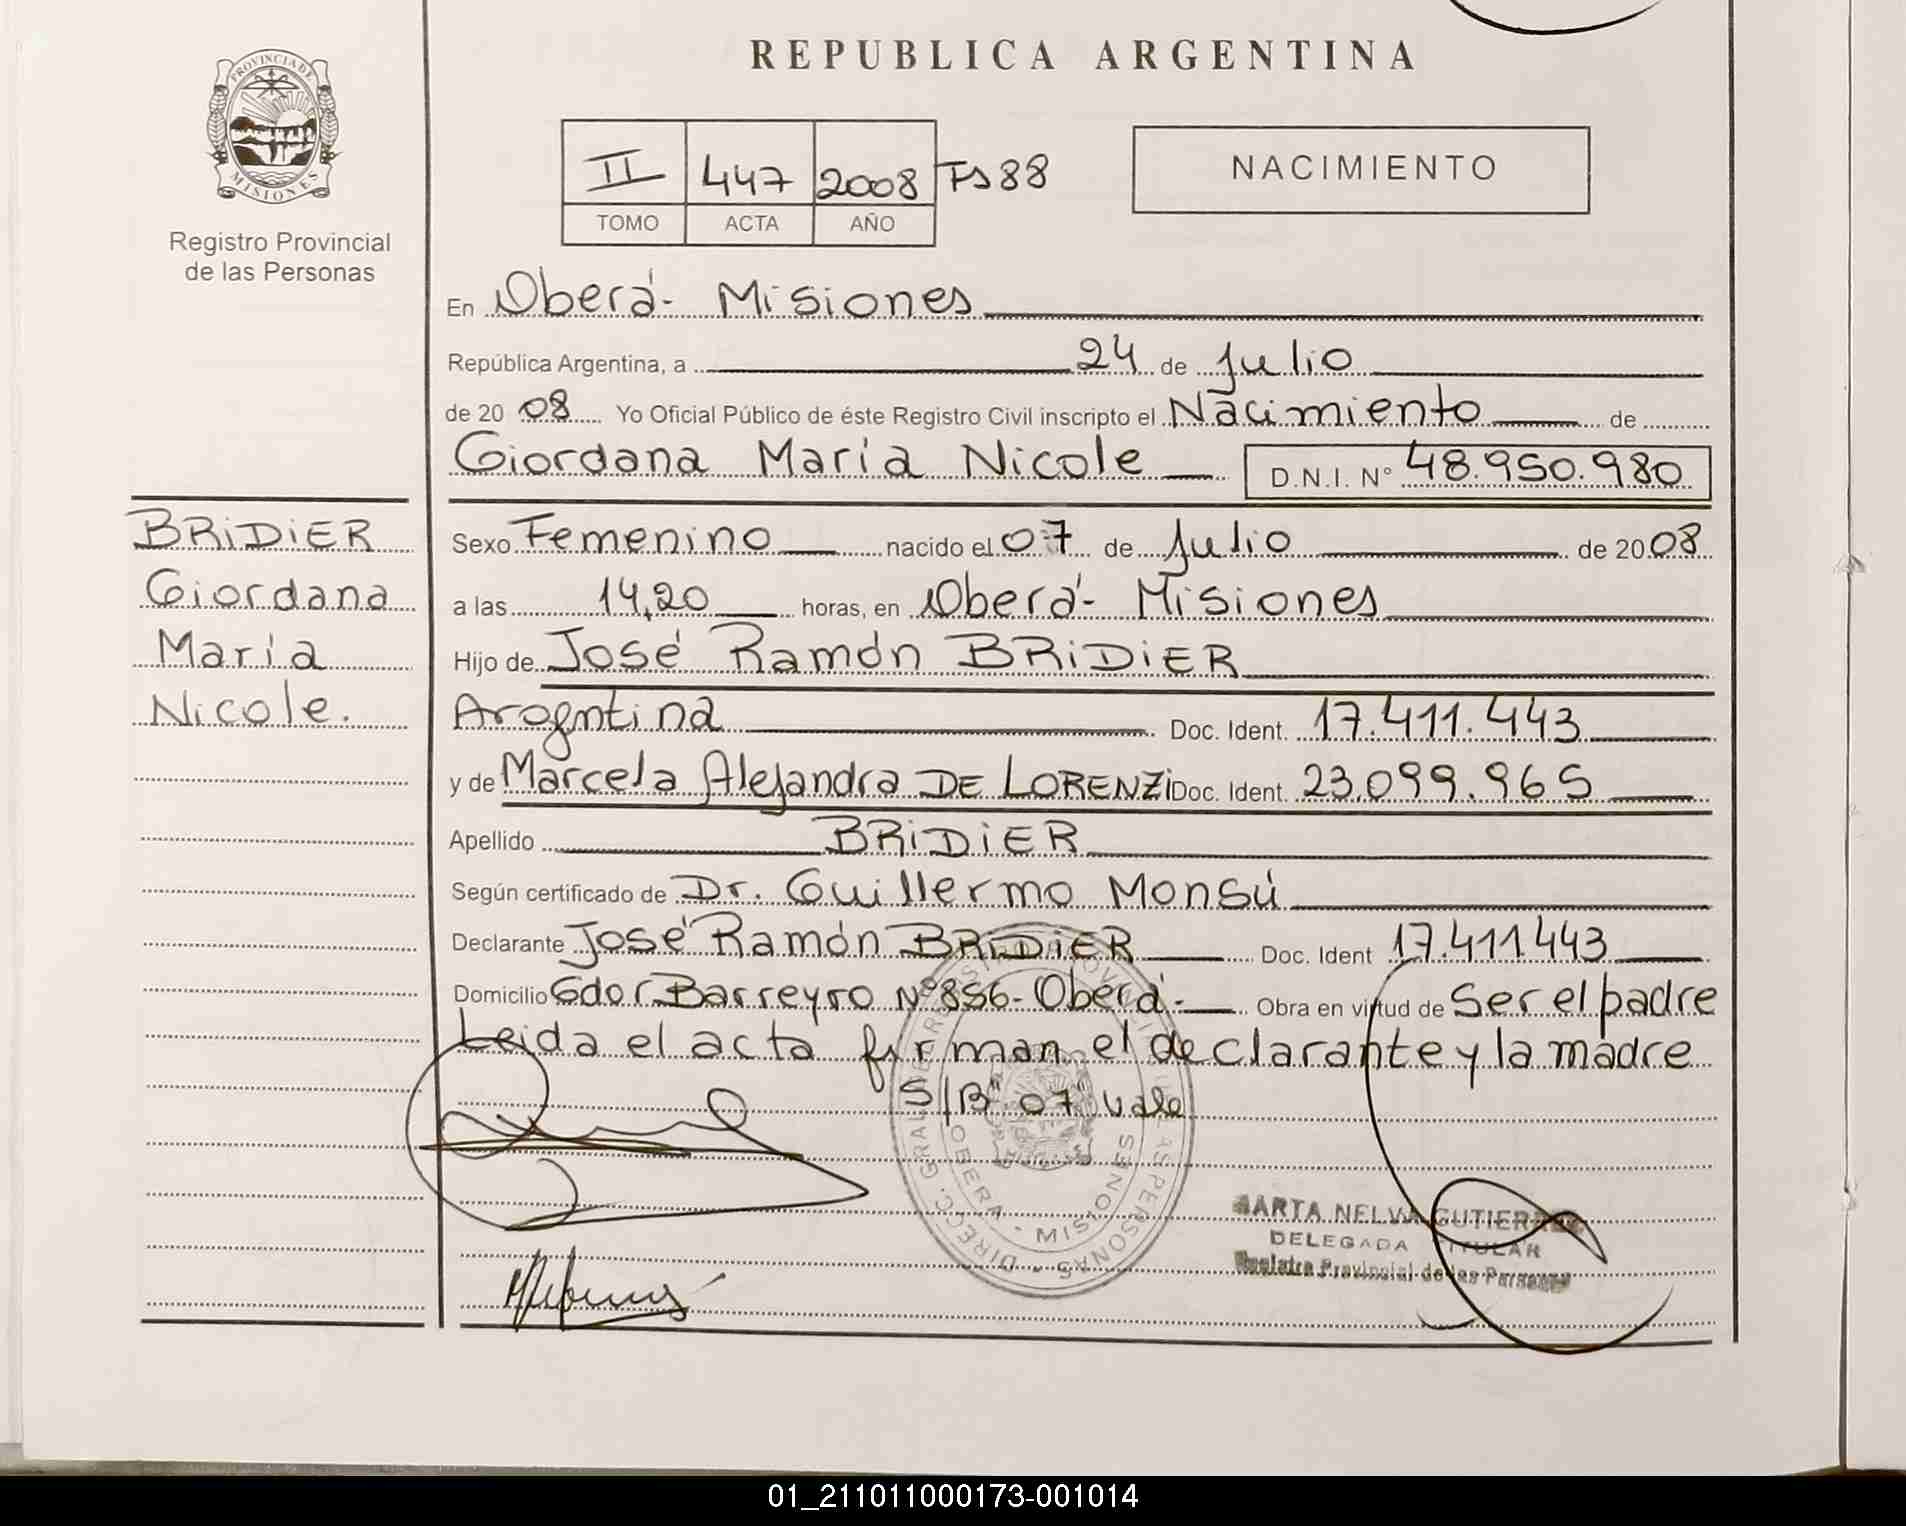 REPUBLICA ARGENTINA
PROVINCIA DE
MISIONES
Registro Provincial
de las Personas
II 447 2008 Fs 88
TOMO ACTA AÑO
NACIMIENTO
En Oberá- Misiones
República Argentina, a 24 de Julio
de 2008 Yo Oficial Público de éste Registro Civil inscripto el Nacimiento de
Giordana María Nicole D.N.I. N° 48.950.980
BRIDIER
Giordana
María
Nicole.
Sexo Femenino nacido el 07 de Julio de 2008
a las 14,20 horas, en Oberá- Misiones
Hijo de José Ramón BRIDIER
Arogntina Doc. Ident. 17.411.443
y de Marcela Alejandra DE LORENZI Doc. Ident. 23.099.965
Apellido BRIDIER
Según certificado de Dr. Guillermo Monsú
Declarante José Ramón BRIDIER Doc. Ident 17.411443
Domicilio Gdor. Barreyro N°856- Oberá- Obra en virtud de Ser el padre
Leida el acta firman el declarante y la madre
S/B "07" vale
DIRECC. GRAL. DE REGISTRO PROVINCIAL DE LAS PERSONAS
OBERA - MISIONES
MARTA NELVA GUTIERREZ
DELEGADA TITULAR
Registro Provincial de las Personas
01_211011000173-001014